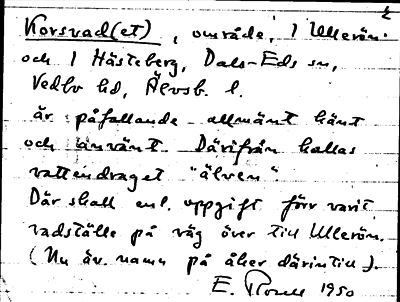 Korsvad(et), område, i Ullerön
och i Hästeberg, Dals-Eds sn,
Vedbo hd, Älvsb. l.
är påfallande allmänt känt
och använt. Därifrån kallas
vattendraget "älven".
Där skall enl. uppgift förr varit
vadställe på väg över till Ullerön.
(Nu äv. namn på åker därintill).
E. 1950